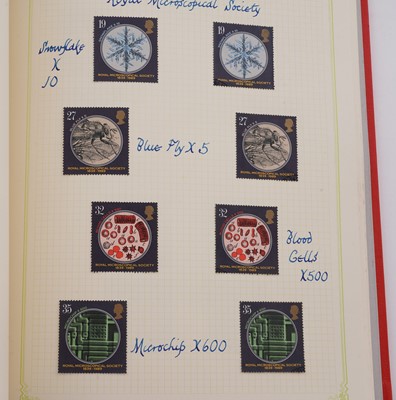 Royal Microscopical Society
19
19
Snowflake
X
10
ROYAL MICROSCOPICAL SOCIETY
1839-1989
ROYAL MICROSCOPICAL SOCIETY
1839-1989
27
27
Blue Fly X 5
ROYAL MICROSCOPICAL SOCIETY
1839-1989
ROYAL MICROSCOPICAL SOCIETY
1839-1989
32
32
Blood
Cells
X500
ROYAL MICROSCOPICAL SOCIETY
1839-1989
ROYAL MICROSCOPICAL SOCIETY
1839-1989
35
35
Microchip X600
ROYAL MICROSCOPICAL SOCIETY
1839-1989
ROYAL MICROSCOPICAL SOCIETY
1839-1989